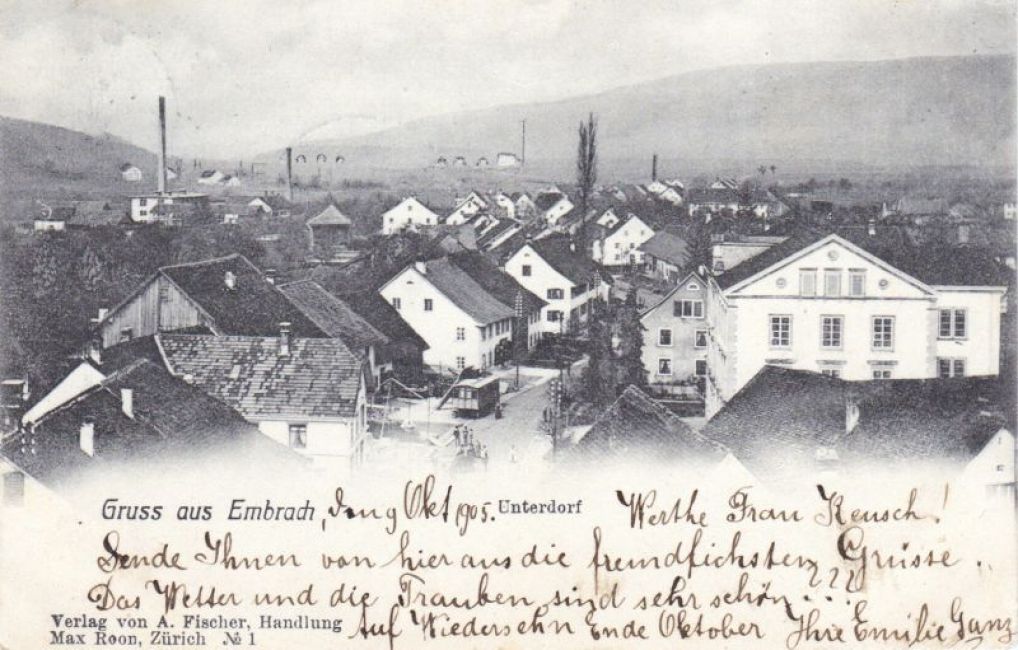 Gruss aus Embrach, den 9 Okt 1905. Unterdorf Werthe Frau Keusch!
Sende Ihnen von hier aus die freundlichsten Grüsse.
Das Wetter und die Trauben sind sehr schön. ???
Verlag von A. Fischer, Handlung Auf Wiedersehn Ende Oktober Ihre Emilie Ganz
Max Roon, Zürich № 1